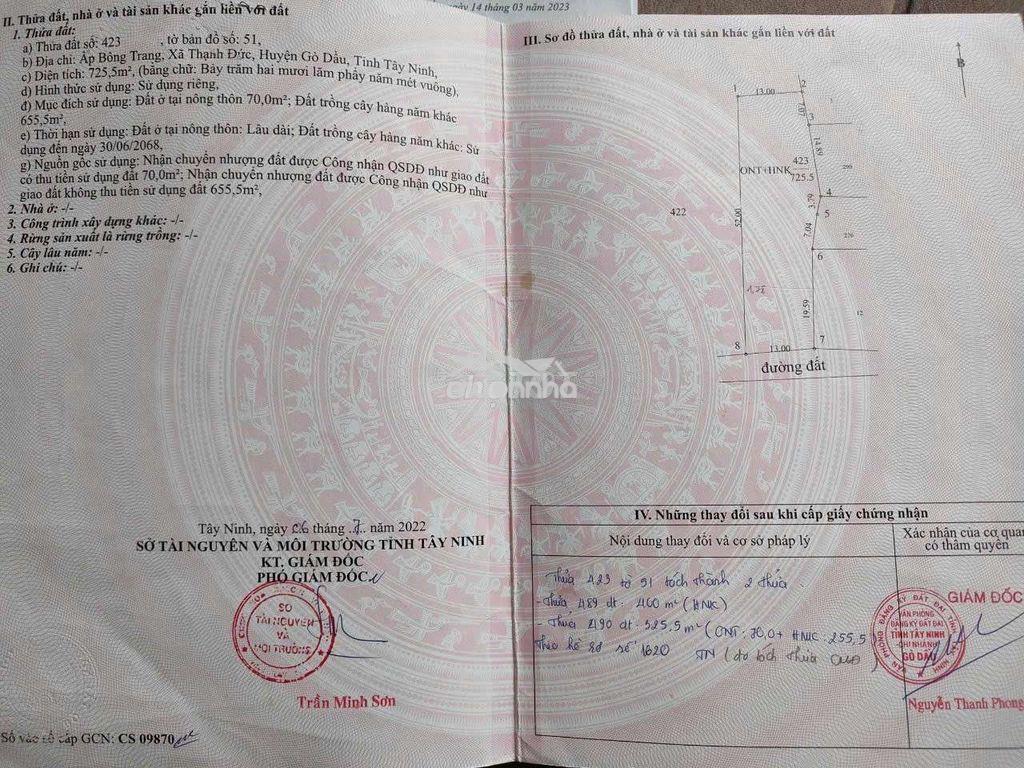 ngày 14 tháng 03 năm 2023
II. Thửa đất, nhà ở và tài sản khác gắn liền với đất
1. Thửa đất:
a) Thửa đất số: 423 , tờ bản đồ số: 51,
b) Địa chỉ: Ấp Bông Trang, Xã Thạnh Đức, Huyện Gò Dầu, Tỉnh Tây Ninh,
c) Diện tích: 725,5m², (bằng chữ: Bảy trăm hai mươi lăm phẩy năm mét vuông),
d) Hình thức sử dụng: Sử dụng riêng,
đ) Mục đích sử dụng: Đất ở tại nông thôn 70,0m²; Đất trồng cây hàng năm khác
655,5m²,
e) Thời hạn sử dụng: Đất ở tại nông thôn: Lâu dài; Đất trồng cây hàng năm khác: Sử
dụng đến ngày 30/06/2068,
g) Nguồn gốc sử dụng: Nhận chuyển nhượng đất được Công nhận QSDĐ như giao đất
có thu tiền sử dụng đất 70,0m²; Nhận chuyển nhượng đất được Công nhận QSDĐ như
giao đất không thu tiền sử dụng đất 655,5m²,
2. Nhà ở: -/-
3. Công trình xây dựng khác: -/-
4. Rừng sản xuất là rừng trồng: -/-
5. Cây lâu năm: -/-
6. Ghi chú: -/-
Tây Ninh, ngày 06 tháng 7 năm 2022
SỞ TÀI NGUYÊN VÀ MÔI TRƯỜNG TỈNH TÂY NINH
KT. GIÁM ĐỐC
PHÓ GIÁM ĐỐC
SỞ
TÀI NGUYÊN
VÀ
MÔI TRƯỜNG
Trần Minh Sơn
Số vào sổ cấp GCN: CS 09870
III. Sơ đồ thửa đất, nhà ở và tài sản khác gắn liền với đất
B
1
13.00
2
7.07
3
14.89
ONT+HNK
423
725.5
299
3.79
4
5
422
52.00
7.04
226
6
19.59
12
8
13.00
7
đường đất
chợtốtnhà
IV. Những thay đổi sau khi cấp giấy chứng nhận
Nội dung thay đổi và cơ sở pháp lý
Xác nhận của cơ quan
có thẩm quyền
Thửa 423 tờ 51 tách thành 2 thửa.
- Thửa 489 dt: 400 m² (HNK)
- Thửa 490 dt: 325,5 m² (ONT: 70,0 + HNK: 255,5)
Theo hồ sơ số 1620 TN (do tách thửa
GIÁM ĐỐC
VĂN PHÒNG
ĐĂNG KÝ ĐẤT ĐAI
TỈNH TÂY NINH
CHI NHÁNH
GÒ DẦU
Nguyễn Thanh Phong